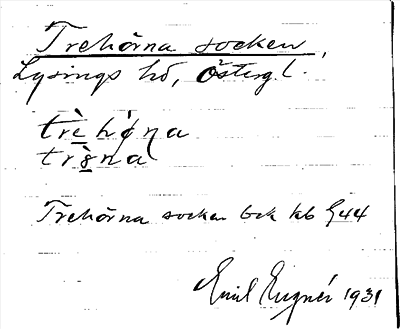 Trehörna socken,
Lysings hd, Östergl.
trè hǿna
trὸ̠na
Trehörna socken bek kb G44
Emil Eugnér 1931